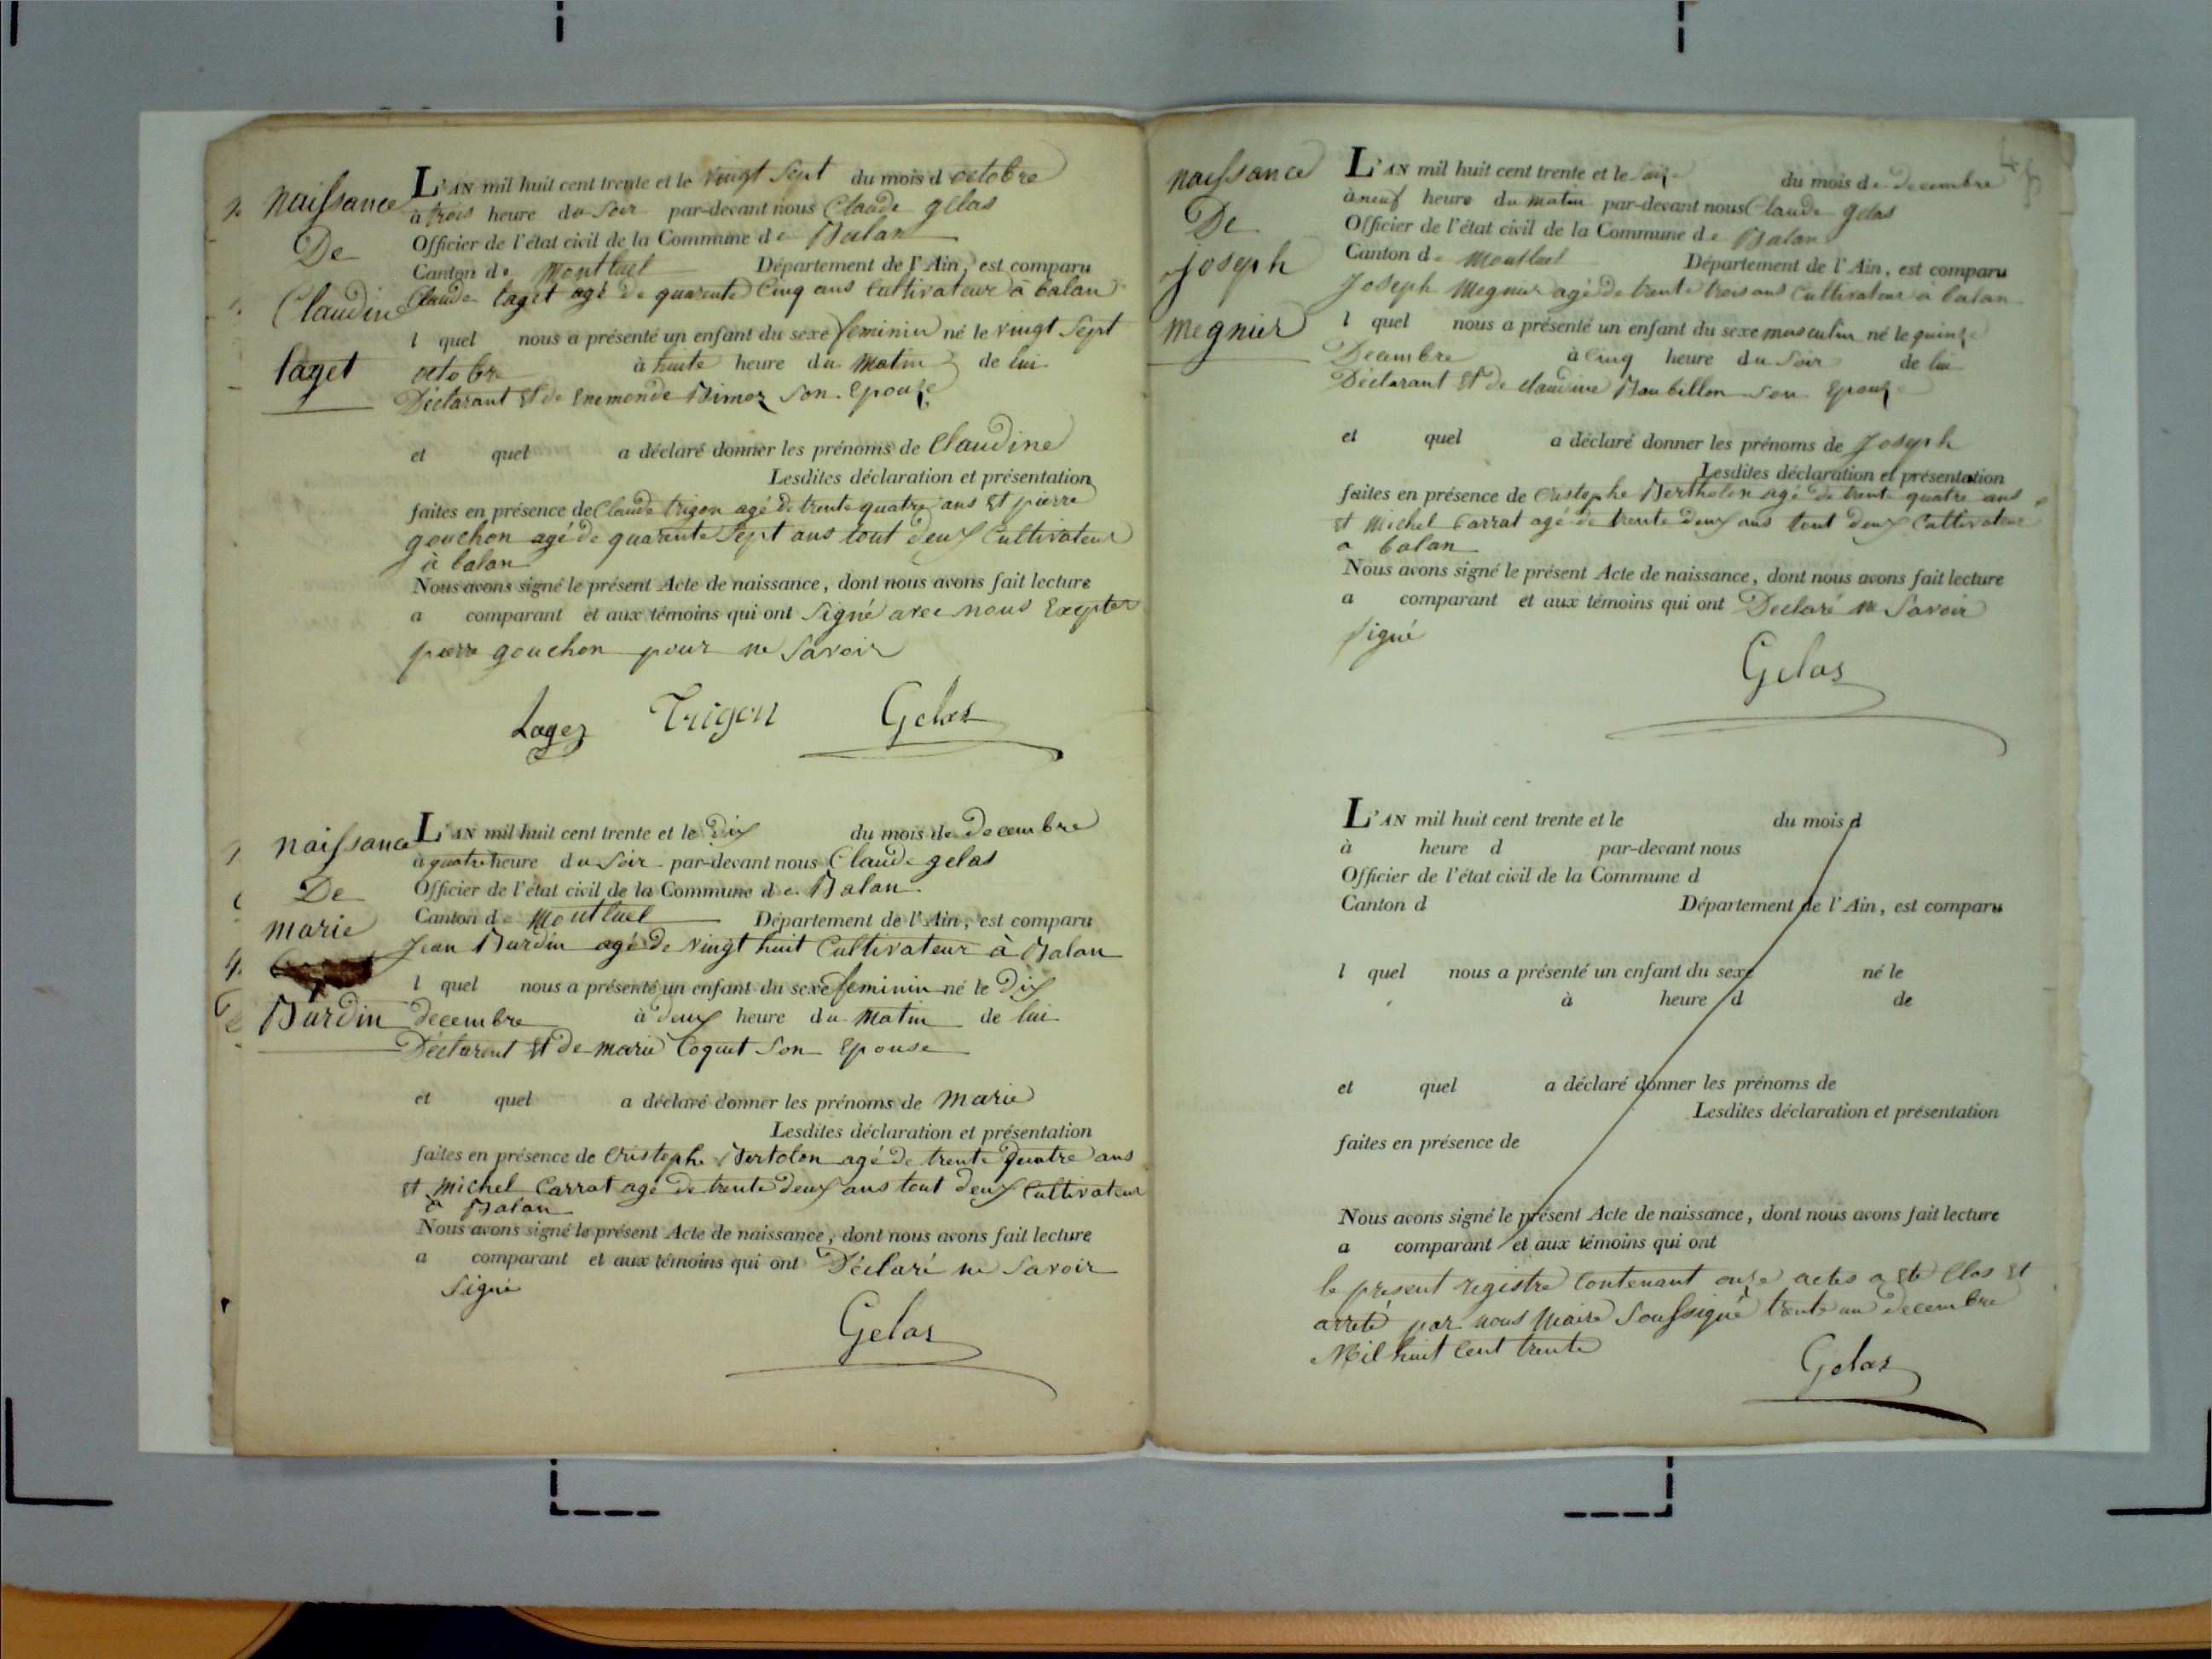 naissance
De
Claudine
laget
L'AN mil huit cent trente et le vingt Sept du mois d octobre
à trois heure du Soir par-devant nous Claude gelas
Officier de l'état civil de la Commune de Balan
Canton de Montluel Département de l'Ain, est comparu
Claude laget agé de quarente Cinq ans Cultivateur à balan
l quel nous a présenté un enfant du sexe feminin né le vingt Sept
octobre à huite heure du Matin de lui
Déclarant et de Enemonde Bimoz Son Epouze
et quel a déclaré donner les prénoms de Claudine
Lesdites déclaration et présentation
faites en présence de Claude trigon agé de trente quatre ans et pierre
gouchon agé de quarente Sept ans tout deux Cultivateur
à balan
Nous avons signé le présent Acte de naissance, dont nous avons fait lecture
a comparant et aux témoins qui ont Signé avec nous Exepter
pierre gouchon pour ne Savoir
Lagez Trigon Gelas
naissance
De
marie
Burdin
L'AN mil huit cent trente et le Dix du mois de Decembre
à quatre heure du Soir par-devant nous Claude gelas
Officier de l'état civil de la Commune de Balan
Canton de Montluel Département de l'Ain, est comparu
Jean Burdin agé de vingt huit Cultivateur à Balan
l quel nous a présenté un enfant du sexe feminin né le Dix
decembre à deux heure du Matin de lui
Déclarent et de marie Coquet Son Epouse
et quel a déclaré donner les prénoms de marie
Lesdites déclaration et présentation
faites en présence de Cristophe Bertolon agé de trente quatre ans
et michel Carrat agé de trente deux ans tout deux Cultivateur
a Balan
Nous avons signé le présent Acte de naissance, dont nous avons fait lecture
a comparant et aux témoins qui ont Déclaré ne Savoir
Signé
Gelas
naissance
De
joseph
megnier
L'AN mil huit cent trente et le Saize du mois de Decembre
à neuf heure du matin par-devant nous Claude gelas
Officier de l'état civil de la Commune de Balan
Canton de Montluel Département de l'Ain, est comparu
Joseph Megnier agé de trente trois ans Cultivateur à balan
l quel nous a présenté un enfant du sexe masculin né le quinze
Decembre à Cinq heure du Soir de lui
Déclarant et de claudine Boubillon Son Epouze
et quel a déclaré donner les prénoms de Joseph
Lesdites déclaration et présentation
faites en présence de Cristophe Bertholon agé de trente quatre ans
et Michel Carrat agé de trente deux ans tout deux Cultivateur
a balan
Nous avons signé le présent Acte de naissance, dont nous avons fait lecture
a comparant et aux témoins qui ont Declaré ne Savoir
signé
Gelas
L'AN mil huit cent trente et le du mois d
à heure d par-devant nous
Officier de l'état civil de la Commune d
Canton d Département de l'Ain, est comparu
l quel nous a présenté un enfant du sexe né le
à heure d de
et quel a déclaré donner les prénoms de
Lesdites déclaration et présentation
faites en présence de
Nous avons signé le présent Acte de naissance, dont nous avons fait lecture
a comparant et aux témoins qui ont
le present registre Contenant onze actes a eté Clos et
arreté par nous Maire Soussigné trente un decembre
Mil huit Cent trente
Gelas